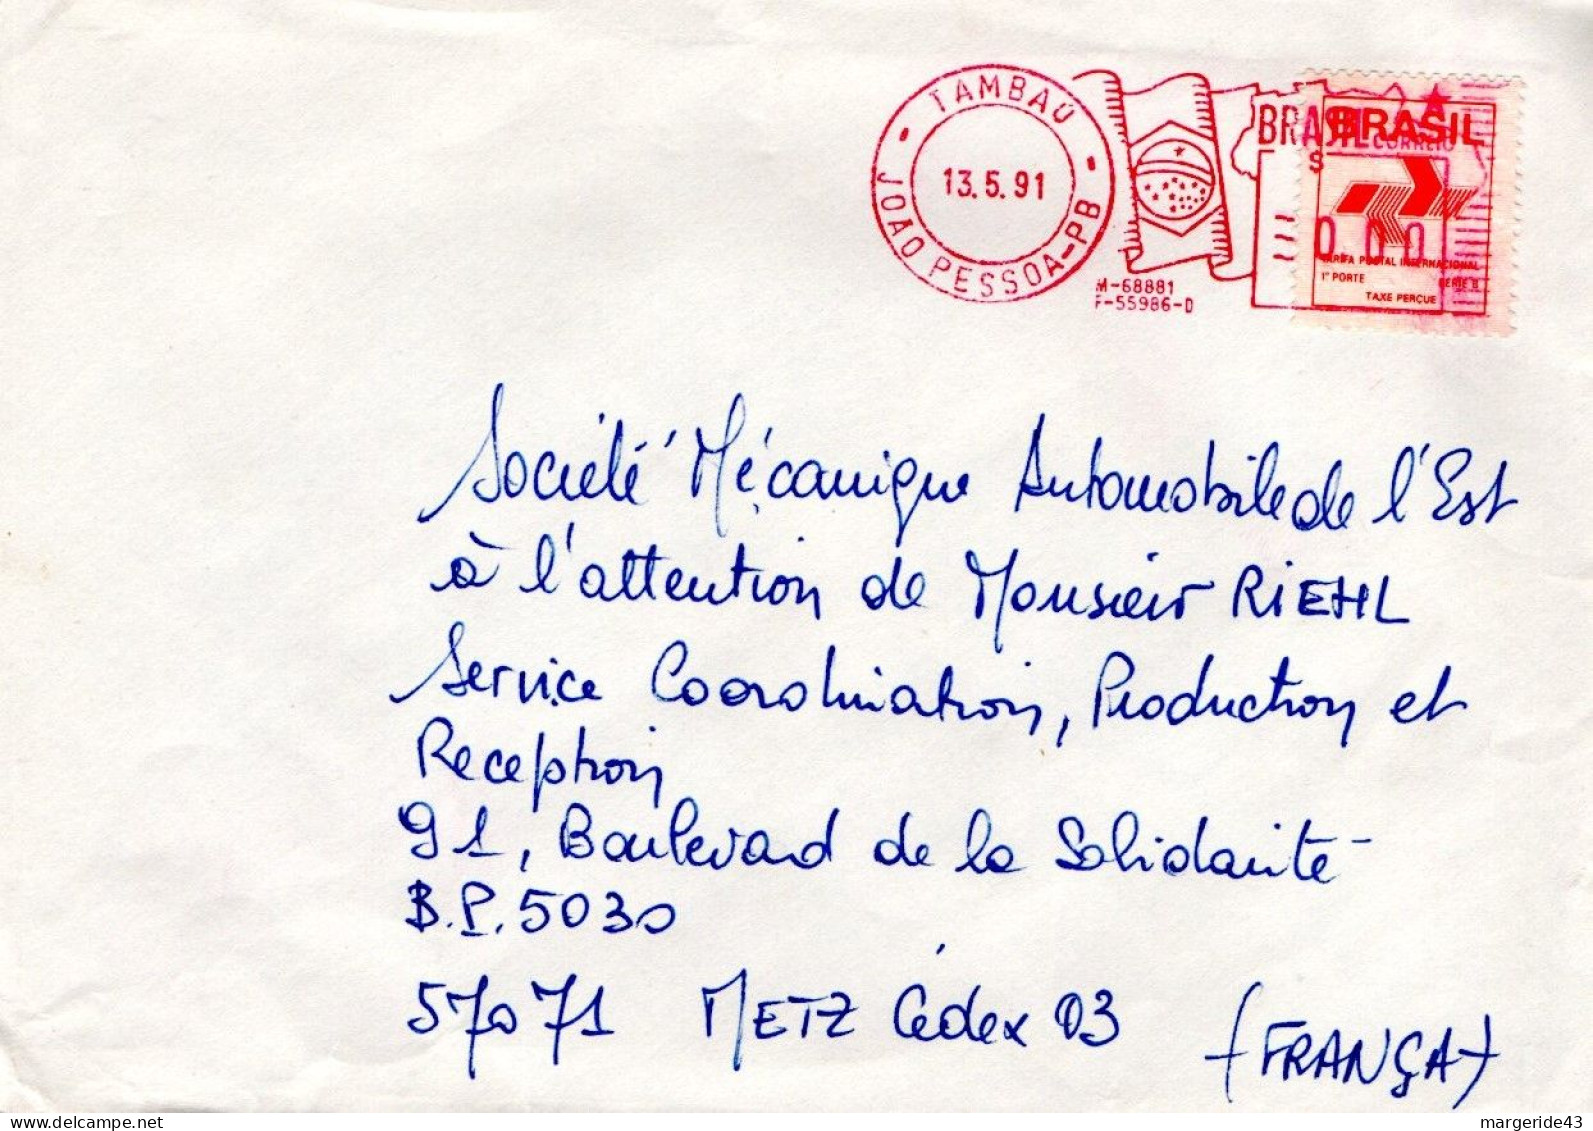 TAMBAÚ
13.5.91
JOAO PESSOA-PB
M-68881
F-55986-D
BRASIL
BRASIL
CORREIO
$
0 00
TARIFA POSTAL INTERNACIONAL
1º PORTE SÉRIE B
TAXE PERÇUE
Société Mécanique Automobile de l'Est
à l'attention de Monsieur RIEHL
Service Coordination, Production et
Reception
91, Boulevard de la Solidarité
B.P. 5030
57071 METZ Cédex 03
(FRANÇA)
margeride43
delcampe.net